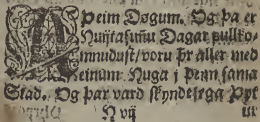 A Þeim Døgum. Og þa er
Huijtasuñu Dagar fullko-
mnudust/ voru þr aller med
Reinum Huga j þeim sama
Stad. Og þar vard skyndelega Þyt
N vij ur